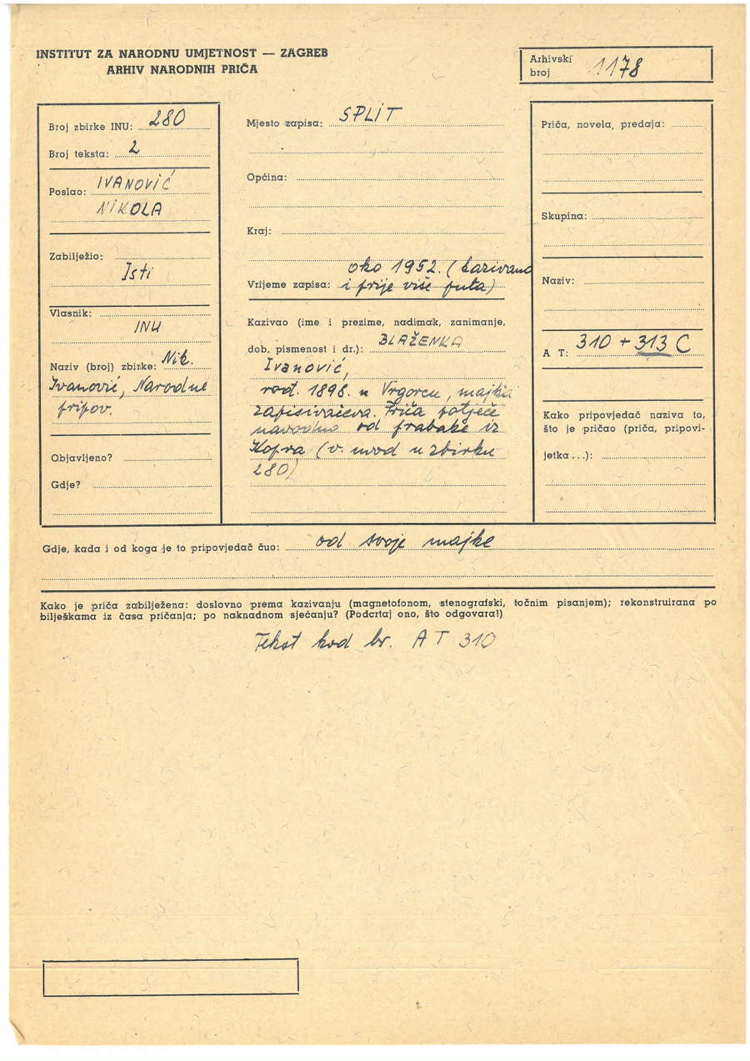 INSTITUT ZA NARODNU UMJETNOST — ZAGREB
ARHIV NARODNIH PRIČA
Arhivski
broj 1178
Broj zbirke INU: 280
Broj teksta: 2
Poslao: IVANOVIĆ
NIKOLA
Zabilježio:
Isti
Vlasnik:
INU
Naziv (broj) zbirke: Nik.
Ivanović, Narodne
pripov.
Objavljeno?
Gdje?
Mjesto zapisa: SPLIT
Općina:
Kraj:
oko 1952. (kazivano
Vrijeme zapisa: i prije više puta)
Kazivao (ime i prezime, nadimak, zanimanje,
dob, pismenost i dr.): BLAŽENKA
Ivanović,
rođ. 1898. u Vrgorcu, majka
zapisivačeva. Priča potječe
navodno od prabake iz
Kopra (v. uvod u zbirku
280)
Priča, novela, predaja:
Skupina:
Naziv:
A T: 310 + 313 C
Kako pripovjedač naziva to,
što je pričao (priča, pripovi-
jetka...):
Gdje, kada i od koga je to pripovjedač čuo: od svoje majke
Kako je priča zabilježena: doslovno prema kazivanju (magnetofonom, stenografski, točnim pisanjem); rekonstruirana po
bilješkama iz časa pričanja; po naknadnom sjećanju? (Podcrtaj ono, što odgovara!)
Tekst kod br. AT 310